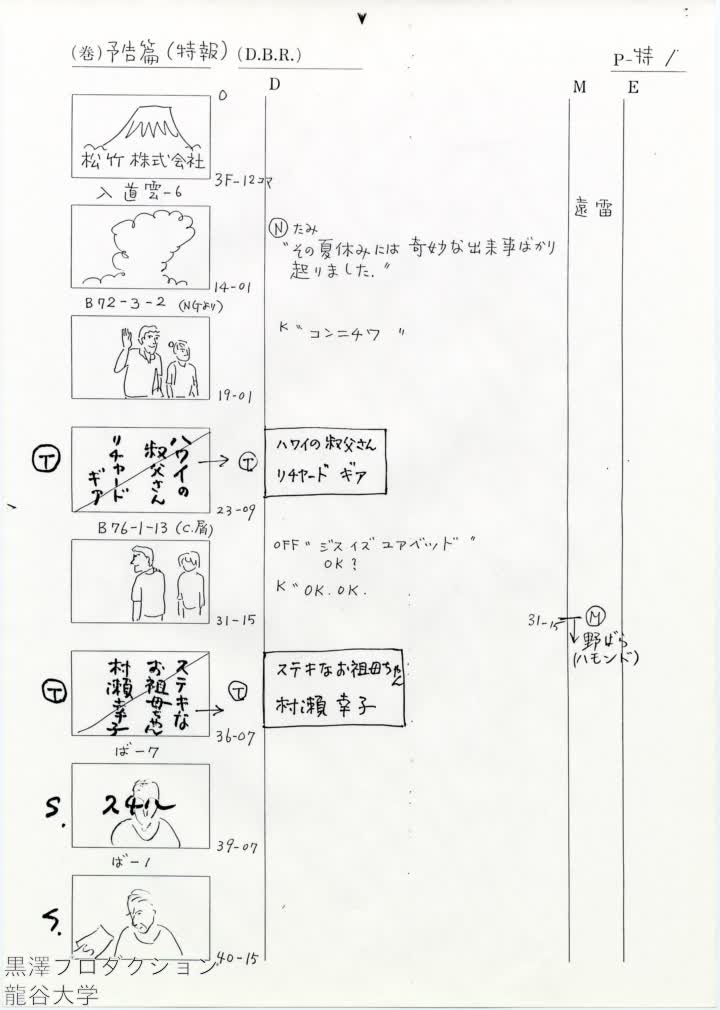 (巻)予告篇(特報) (D.B.R.)
P-特1
D
M
E
0
松竹株式会社
3F-12コマ
入道雲-6
遠雷
Ⓝ たみ
"その夏休みには 奇妙な出来事ばかり
起りました."
14-01
B72-3-2 (NGより)
K "コンニチワ"
19-01
Ⓣ
ハワイの
叔父さん
リチャード
ギア
→ Ⓣ
ハワイの叔父さん
リチャード ギア
23-09
B76-1-13 (C.屑)
OFF "ジスイズ ユアベッド"
OK?
K "OK.OK.
31-15
31-15
Ⓜ
野ばら
(ハモンド)
Ⓣ
ステキな
お祖母ちゃん
村瀬幸子
→ Ⓣ
ステキなお祖母ちゃん
村瀬 幸子
36-07
ば-7
S.
スチール
39-07
ば-1
S.
40-15
黒澤プロダクション
龍谷大学